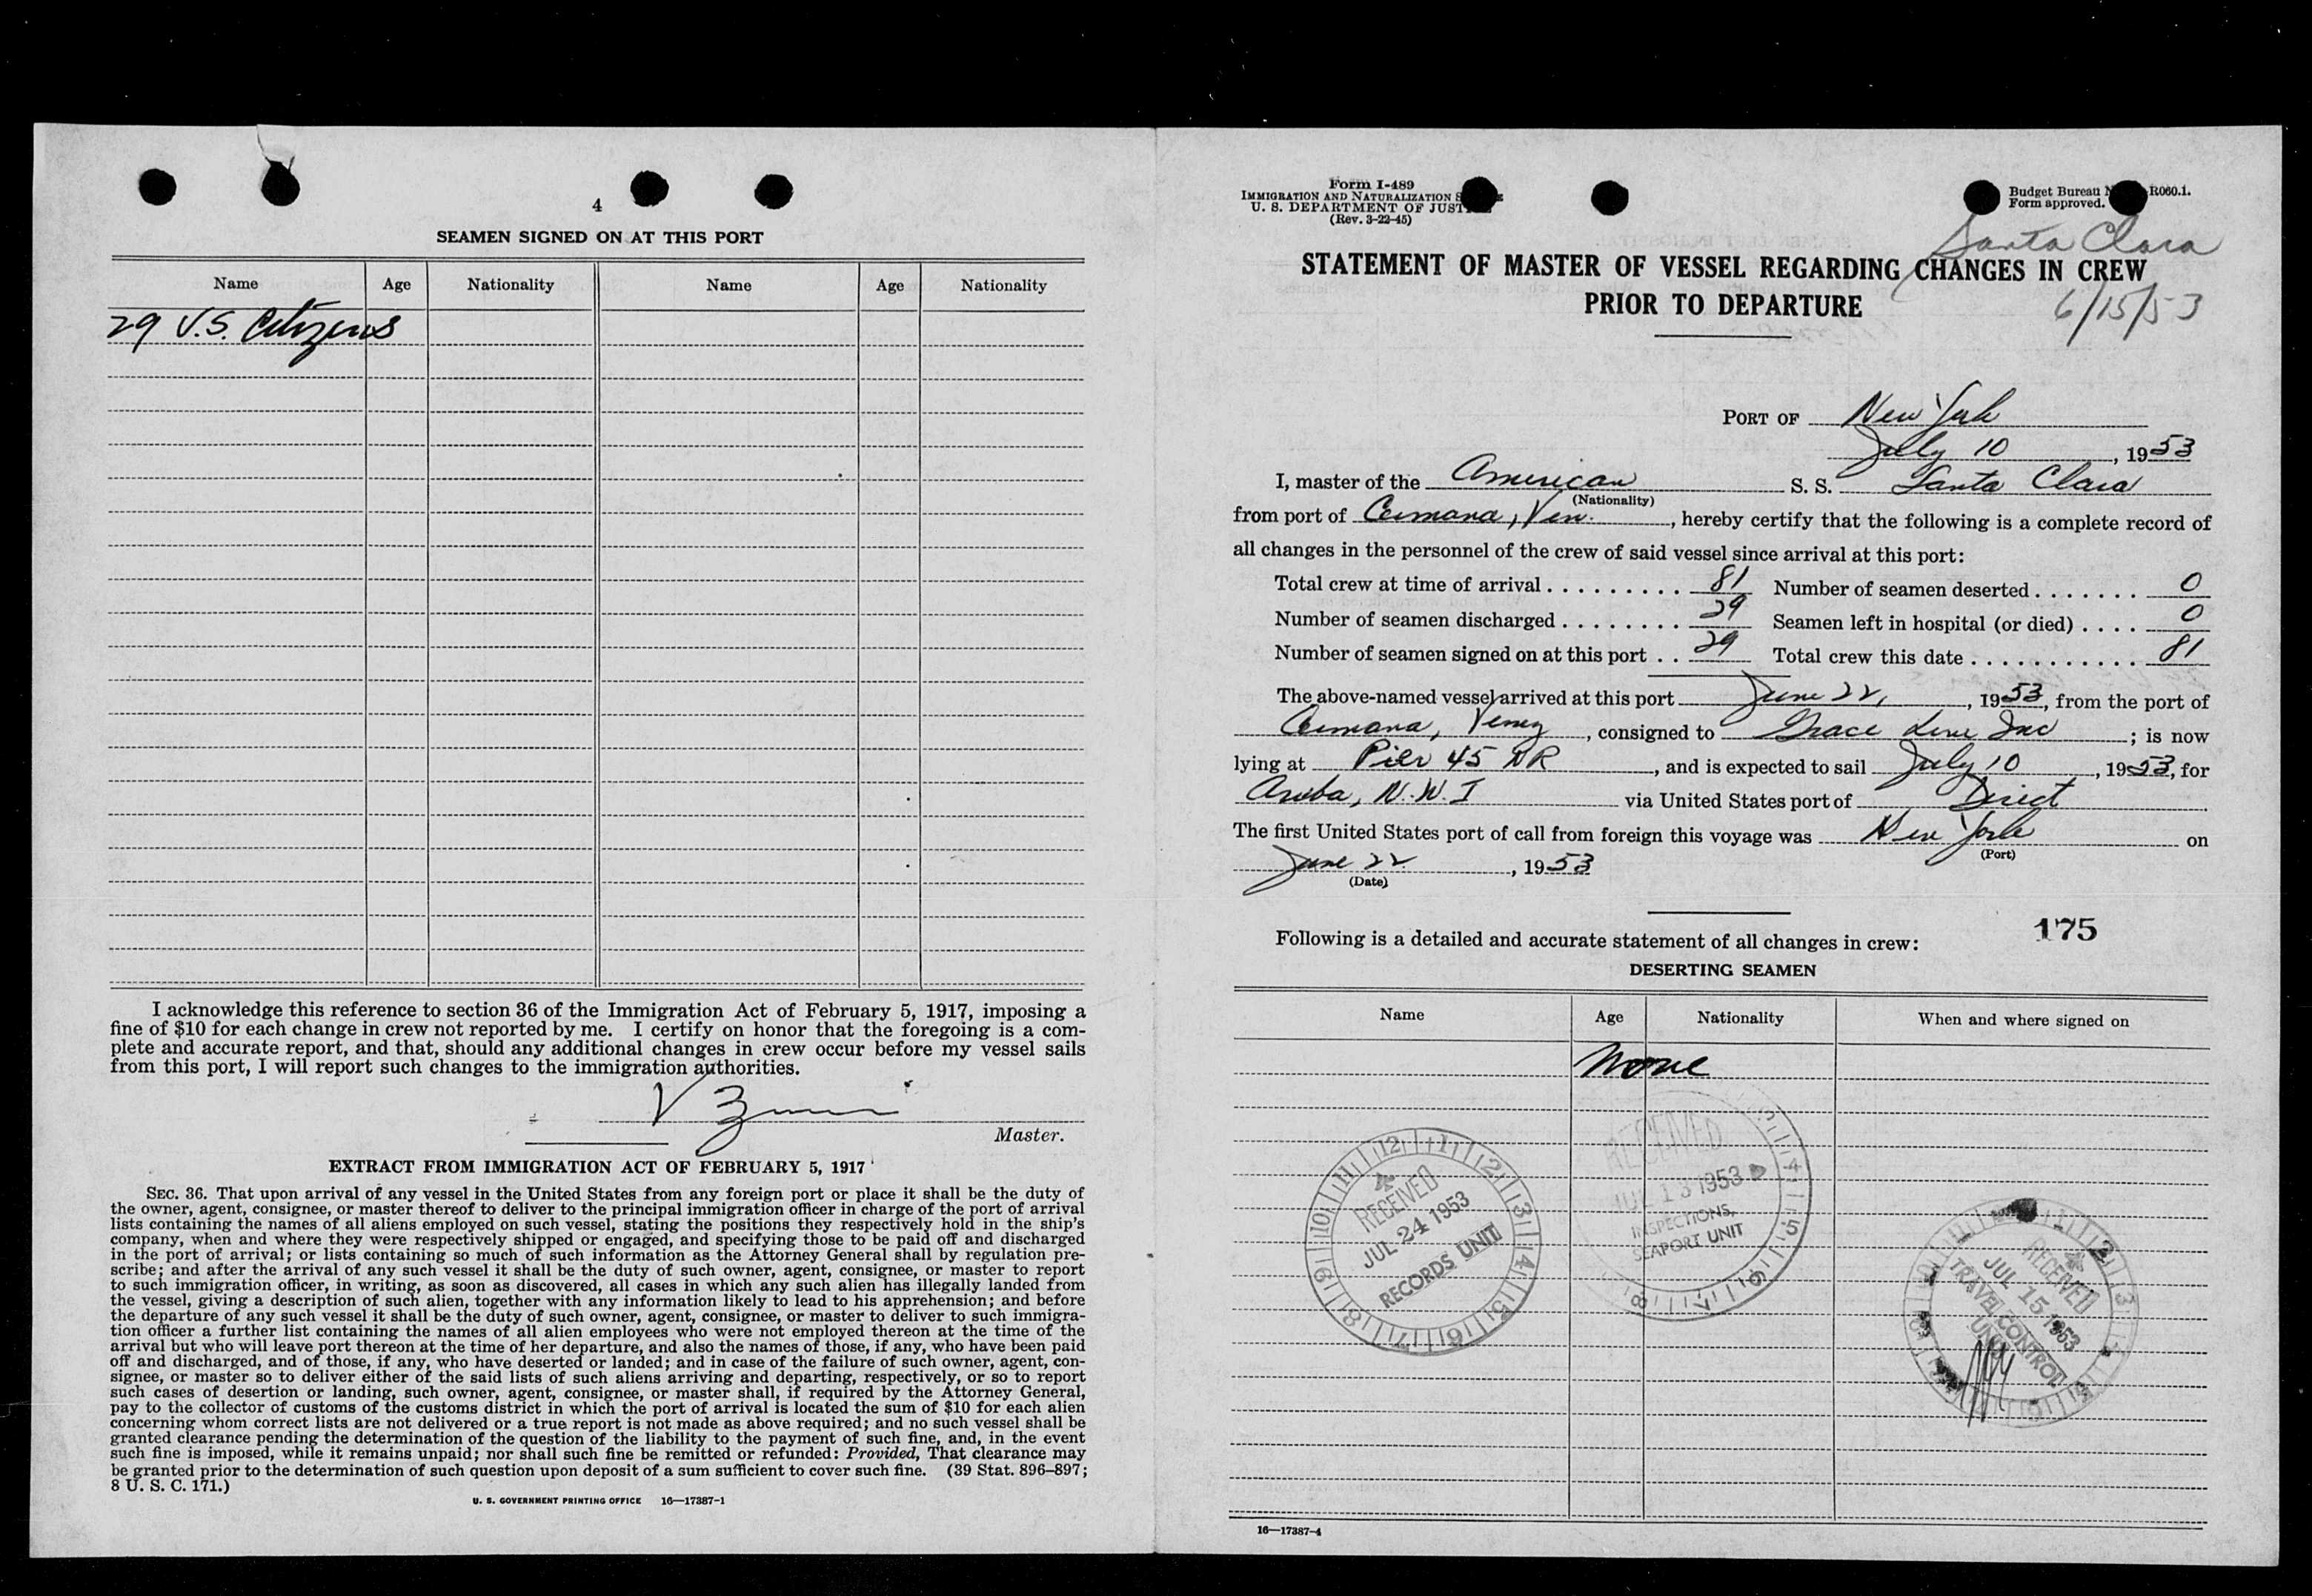 4
SEAMEN SIGNED ON AT THIS PORT
Name Age Nationality Name Age Nationality
29 U.S. Citizens
I acknowledge this reference to section 36 of the Immigration Act of February 5, 1917, imposing a
fine of $10 for each change in crew not reported by me. I certify on honor that the foregoing is a com-
plete and accurate report, and that, should any additional changes in crew occur before my vessel sails
from this port, I will report such changes to the immigration authorities.
Master.
EXTRACT FROM IMMIGRATION ACT OF FEBRUARY 5, 1917
SEC. 36. That upon arrival of any vessel in the United States from any foreign port or place it shall be the duty of
the owner, agent, consignee, or master thereof to deliver to the principal immigration officer in charge of the port of arrival
lists containing the names of all aliens employed on such vessel, stating the positions they respectively hold in the ship's
company, when and where they were respectively shipped or engaged, and specifying those to be paid off and discharged
in the port of arrival; or lists containing so much of such information as the Attorney General shall by regulation pre-
scribe; and after the arrival of any such vessel it shall be the duty of such owner, agent, consignee, or master to report
to such immigration officer, in writing, as soon as discovered, all cases in which any such alien has illegally landed from
the vessel, giving a description of such alien, together with any information likely to lead to his apprehension; and before
the departure of any such vessel it shall be the duty of such owner, agent, consignee, or master to deliver to such immigra-
tion officer a further list containing the names of all alien employees who were not employed thereon at the time of the
arrival but who will leave port thereon at the time of her departure, and also the names of those, if any, who have been paid
off and discharged, and of those, if any, who have deserted or landed; and in case of the failure of such owner, agent, con-
signee, or master so to deliver either of the said lists of such aliens arriving and departing, respectively, or so to report
such cases of desertion or landing, such owner, agent, consignee, or master shall, if required by the Attorney General,
pay to the collector of customs of the customs district in which the port of arrival is located the sum of $10 for each alien
concerning whom correct lists are not delivered or a true report is not made as above required; and no such vessel shall be
granted clearance pending the determination of the question of the liability to the payment of such fine, and, in the event
such fine is imposed, while it remains unpaid; nor shall such fine be remitted or refunded: Provided, That clearance may
be granted prior to the determination of such question upon deposit of a sum sufficient to cover such fine. (39 Stat. 896–897;
8 U. S. C. 171.)
U. S. GOVERNMENT PRINTING OFFICE 16—17387-1
Form I-489
IMMIGRATION AND NATURALIZATION
U. S. DEPARTMENT OF JUST
(Rev. 3-22-45)
Budget Bureau R060.1.
Form approved.
Santa Clara
STATEMENT OF MASTER OF VESSEL REGARDING CHANGES IN CREW
PRIOR TO DEPARTURE
6/15/53
PORT OF New York
July 10, 1953
I, master of the American S. S. Santa Clara
(Nationality)
from port of Cumana, Ven., hereby certify that the following is a complete record of
all changes in the personnel of the crew of said vessel since arrival at this port:
Total crew at time of arrival 81 Number of seamen deserted 0
Number of seamen discharged 29 Seamen left in hospital (or died) 0
Number of seamen signed on at this port 29 Total crew this date 81
The above-named vessel arrived at this port June 22, 1953, from the port of
Cumana, Venez, consigned to Grace Line Inc; is now
lying at Pier 45 NR, and is expected to sail July 10, 1953, for
Aruba, N.W.I via United States port of Direct
The first United States port of call from foreign this voyage was New York on
(Port)
June 22, 1953
(Date)
175
Following is a detailed and accurate statement of all changes in crew:
DESERTING SEAMEN
Name Age Nationality When and where signed on
None
RECEIVED
JUL 24 1953
RECORDS UNIT
RECEIVED
JUL 13 1953
INSPECTIONS,
SEAPORT UNIT
RECEIVED
JUL 15 1953
TRAVEL CONTROL
UNIT
16—17387-4